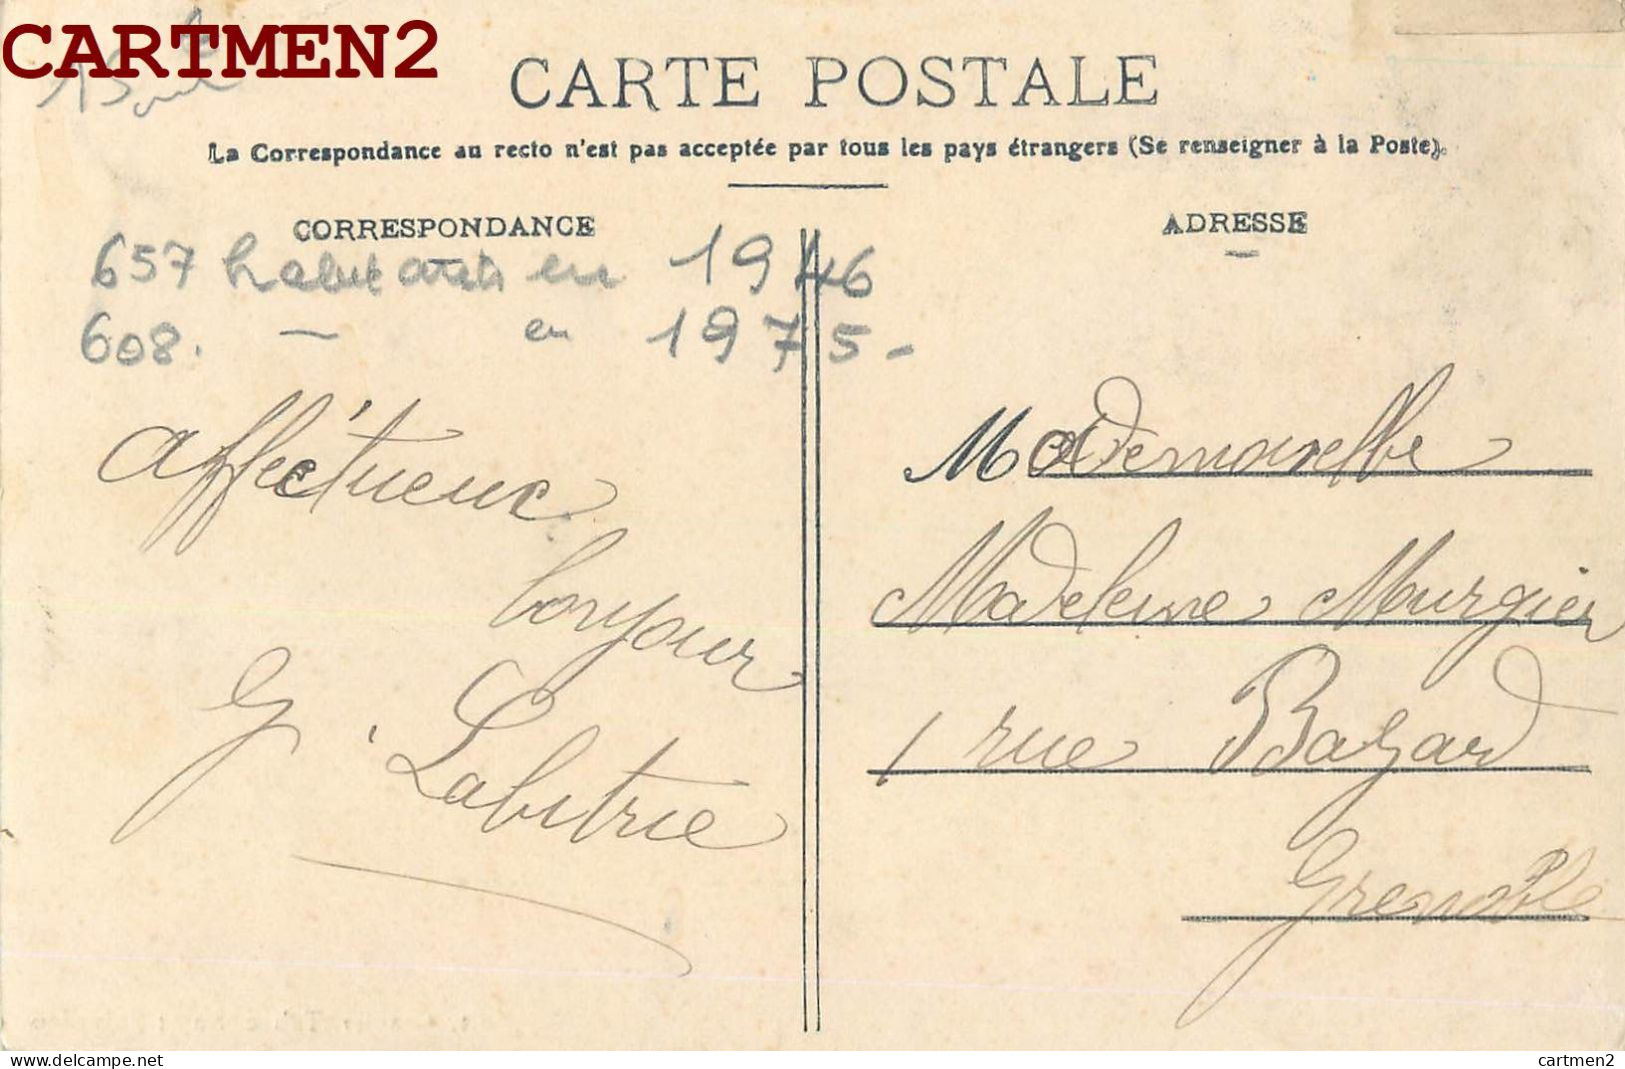 CARTMEN2
CARTE POSTALE
La Correspondance au recto n'est pas acceptée par tous les pays étrangers (Se renseigner à la Poste).
CORRESPONDANCE
657 habitants en 1946
608. — en 1975 -
Affectueux
bonjour
G. Labitrie
ADRESSE
Mademoiselle
Madeleine Murgier
1 rue Bazard
Grenoble
www.delcampe.net
cartmen2